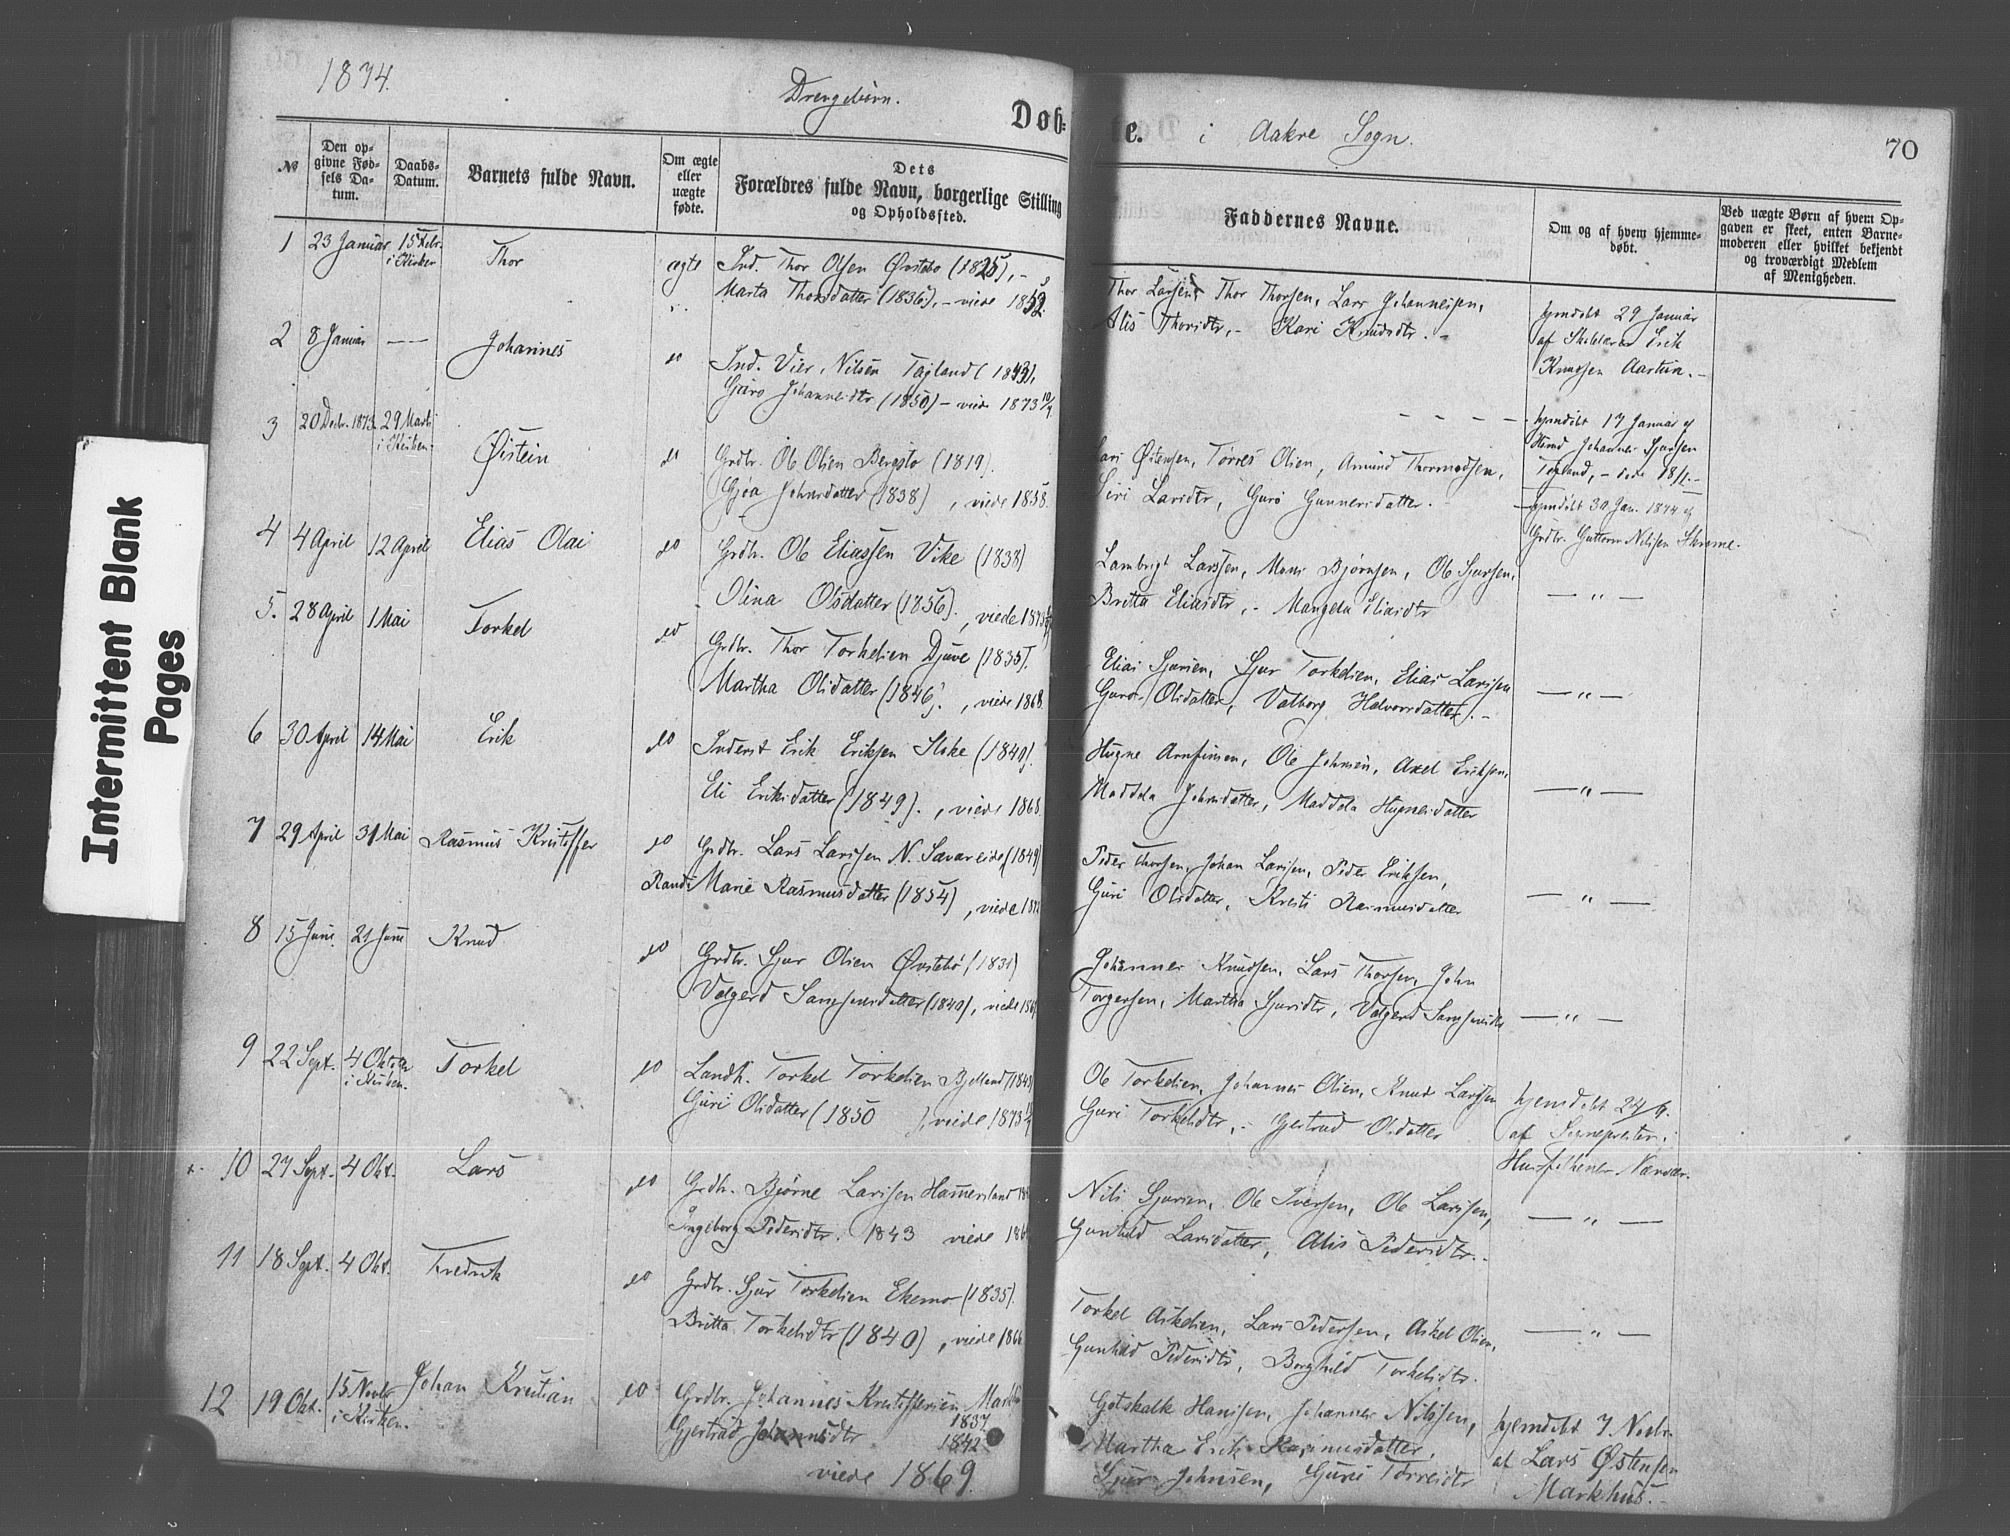 1874.
Drengebørn.
Døb=
te. i Aakre Sogn.
70
Intermittent Blank
Pages
№
Den op-
givne Fød-
sels Da-
tum.
Daabs-
Datum.
Barnets fulde Navn.
Om ægte
eller
uægte
fødte.
Dets
Forældres fulde Navn, borgerlige Stilling
og Opholdssted.
Faddernes Navne.
Om og af hvem hjemme-
døbt.
Ved uægte Børn af hvem Op-
gaven er skeet, enten Barne-
moderen eller hvilket bekjendt
og troværdigt Medlem
af Menigheden.
1 23 Januar 15 Febr. Thor ægte Ind. Thor Olsen Øvstebø (1825), -
i Kirken
Marta Thorsdatter (1836), - viede 1852
Thor Larsen, Thor Thorsen, Lars Johannessen,
Alis Thorsdtr, - Kari Knudsdtr. -
hjemdøbt 29 Januar
af Skolelærer Erik
Knudsen Aartun. -
2 8 Januar — — Johannes do Ind. Vier Nilsen Tagland (1849),
Guro Johannesdtr (1850) - viede 1873
- - - -
hjemdøbt 17 Januar af
Johannes Sjursen
Tagland, - døde 18/1. -
3 20 Decbr. 1873. 29 Marts Øistein do Grdbr. Ole Olsen Bergstø (1819).
i Kirken
Gjøa Johnsdatter (1838), viede 1858.
Lars Østensen, Torres Olsen, Amund Thormodsen,
Siri Larsdtr, Guro Gunnarsdatter.
hjemdøbt 30 Jan. 1874 af
Grdbr. Guttorm Nilsen Skrome.
4 4 April 12 April Elias Olai do Grdbr. Ole Eliassen Vike (1838)
Olina Olsdatter (1856), viede 1873
Lambrigt Larssen, Mons Bjørnsen, Ole Sjursen,
Britta Eliasdtr, - Mangela Eliasdtr
— " —
5. 28 April 1 Mai Torkel do Grdbr. Thor Torkelsen Djuve (1835).
Martha Olsdatter (1846), viede 1868.
Elias Sjursen, Sjur Torkelsen, Elias Larssen
Guro Olsdatter, Valborg Halvorsdatter. -
— " —
6 30 April 14 Mai Erik do Inderst Erik Eriksen Ilske (1840).
Eli Eriksdatter (1849)., viede 1868
Hugne Arnfinsen, Ole Johnsen, Axel Eriksen,
Maddela Johnsdatter, Maddela Hugnesdatter
— " —
7 29 April 31 Mai Rasmus Kristoffer do Grdbr. Lars Larssen N. Sævareide (1849)
Randi Marie Rasmusdatter (1854), viede 1872
Peder Thorsen, Johan Larssen, Peder Eriksen,
Guri Olsdatter, Kristi Rasmusdatter
— " —
8 15 Juni 21 Juni Knud do Grdbr. Sjur Olsen Øvstebø (1831)
Valgerd Samsonsdatter (1840), viede
Johannes Knudsen, Lars Thorsen, John
Torgersen, Martha Sjursdtr, Valgerd Samsonsdtr
— " —
9 22 Sept. 4 Oktober Torkel do Landh. Torkel Torkelsen Bjelland (1848
i Kirken.
Guri Olsdatter (1850 ), viede 1873
Ole Torkelsen, Johannes Olsen, Knud Larssen
Guri Torkelsdtr, - Gjertrud Olsdatter
hjemdøbt 24/9.
af Sognepresten
10 27 Sept. 4 Okt. Lars do Grdbr. Bjørne Larssen Hammersland
Ingeborg Pedersdtr. 1843 viede
Nils Sjursen, Ole Iversen, Ole Larssen,
Gunhild Larsdatter, Alis Pedersdtr. -
— " —
11 18 Sept. 4 Okt. Fredrik do Grdbr. Sjur Torkelsen Ekemo (1835).
Britta Torkelsdtr (1840), viede 1866
Torkel Askelsen, Lars Pedersen, Askel Olsen,
Gunhild Pedersdtr, Borghild Torkelsdtr.
— " —
12 19 Okt. 15 Novbr Johan Kristian do Grdbr. Johannes Kristoffersen Markhus
i Kirken.
1837
Gjertrud Johannesdtr 1842
viede 1869.
Gotskalk Hanssen, Johannes Nilssen,
Martha Erik Rasmusdatter,
Sjur Johnsen, Guri Torresdtr
hjemdøbt 7 Novbr.
af Lars Østensen
Markhus. -